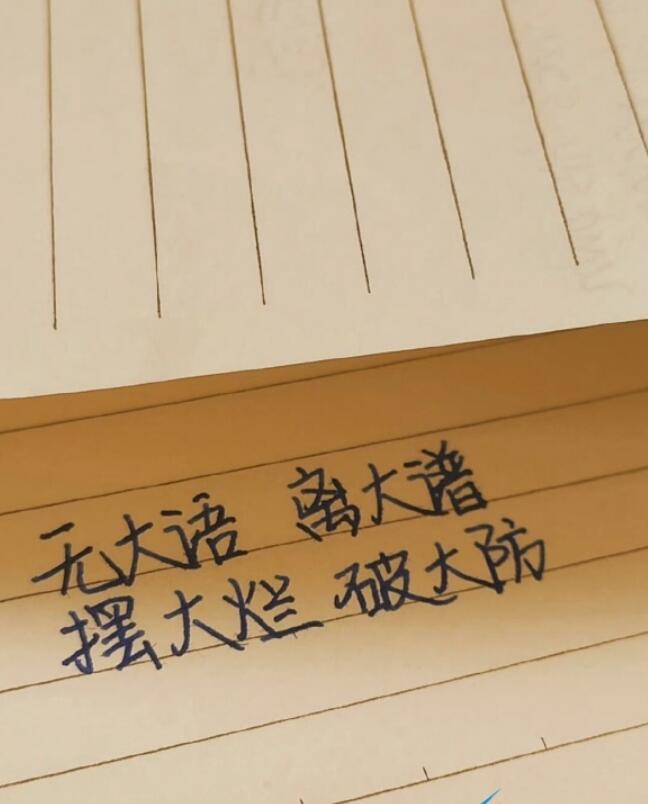 无大语 离大谱
摆大烂 破大防